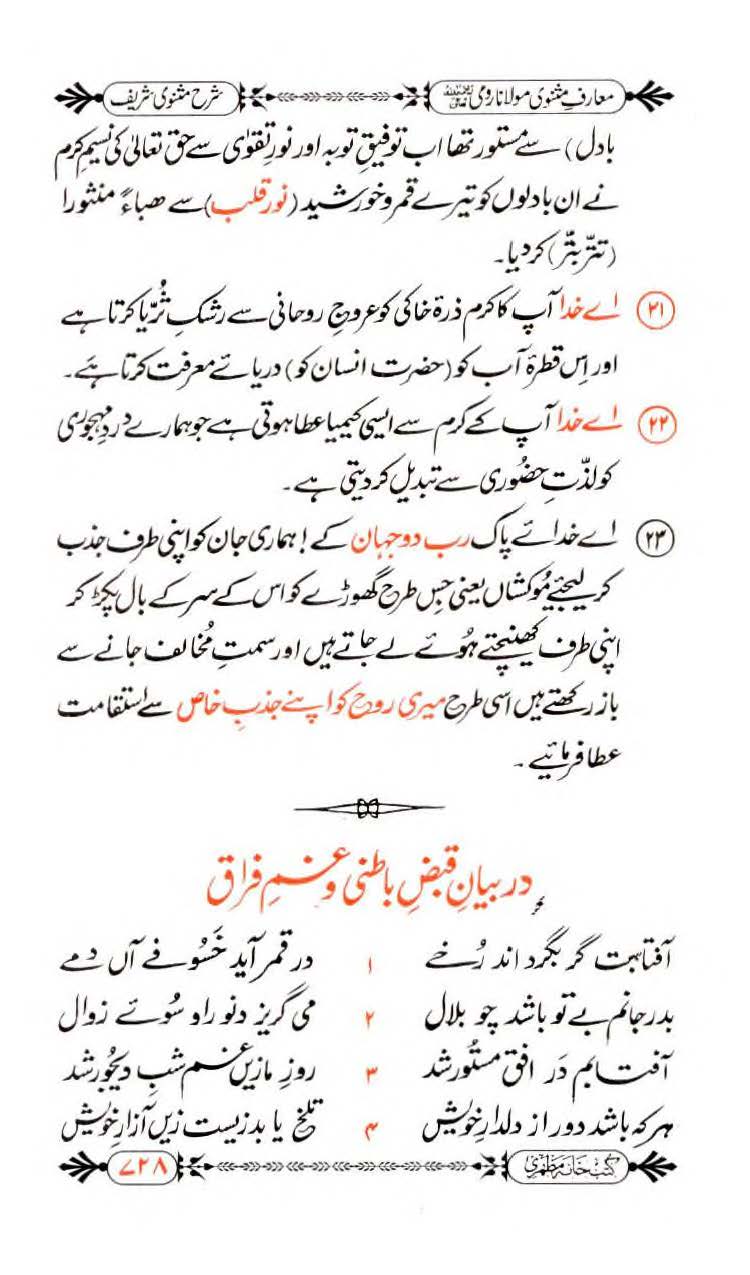 معارفِ مثنوی مولانا رومی رحمۃ اللہ علیہ
شرح مثنوی شریف
بادل) سے مستور تھا اب توفیقِ توبہ اور نورِ تقوٰی سے حق تعالیٰ کی نسیمِ کرم
نے ان بادلوں کو تیرے قمر و خورشید (نورِ قلب) سے ھباءً منثورا
(تتّر بتّر) کر دیا۔
۲۱ اے خدا آپ کا کرم ذرۂ خاکی کو عروجِ روحانی سے رشکِ ثُریّا کرتا ہے
اور اِس قطرۂ آب کو (حضرت انسان کو) دریائے معرفت کرتا ہے۔
۲۲ اے خدا آپ کے کرم سے ایسی کیمیا عطا ہوتی ہے جو ہمارے دردِ مہجوری
کو لذّتِ حضُوری سے تبدیل کر دیتی ہے۔
۲۳ اے خدائے پاک رب دو جہان کے! ہماری جان کو اپنی طرف جذب
کر لیجئے مُوکشاں یعنی جس طرح گھوڑے کو اس کے سر کے بال پکڑ کر
اپنی طرف کھینچتے ہُوئے لے جاتے ہیں اور سمتِ مُخالف جانے سے
باز رکھتے ہیں اسی طرح میری روح کو اپنے جذبِ خاص سے استقامت
عطا فرمائیے۔
در بیانِ قبضِ باطنی و غمِ فراق
آفتابت گر بگرداند رُخے ۱ در قمر آید خَسُوفے آں دمے
بدرِ جانم بے تو باشد چو ہلال ۲ می گریزد نورِ او سُوئے زوال
آفتابم دَر افق مستُور شد ۳ روزِ ما زیں غم شبِ دیجُور شد
ہر کہ باشد دور از دلدارِ خویش ۴ تلخ یا بد زیست زیں آزارِ خویش
کتب خانہ مظہری
۷۲۸